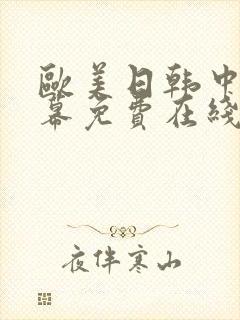 歐美日韩中
幕免費在綫
夜伴寒山